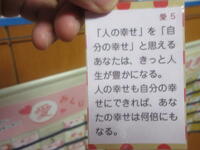 愛 5
「人の幸せ」を「自
分の幸せ」と思える
あなたは、きっと人
生が豊かになる。
人の幸せも自分の幸
せにできれば、あな
たの幸せは何倍にも
なる。
愛